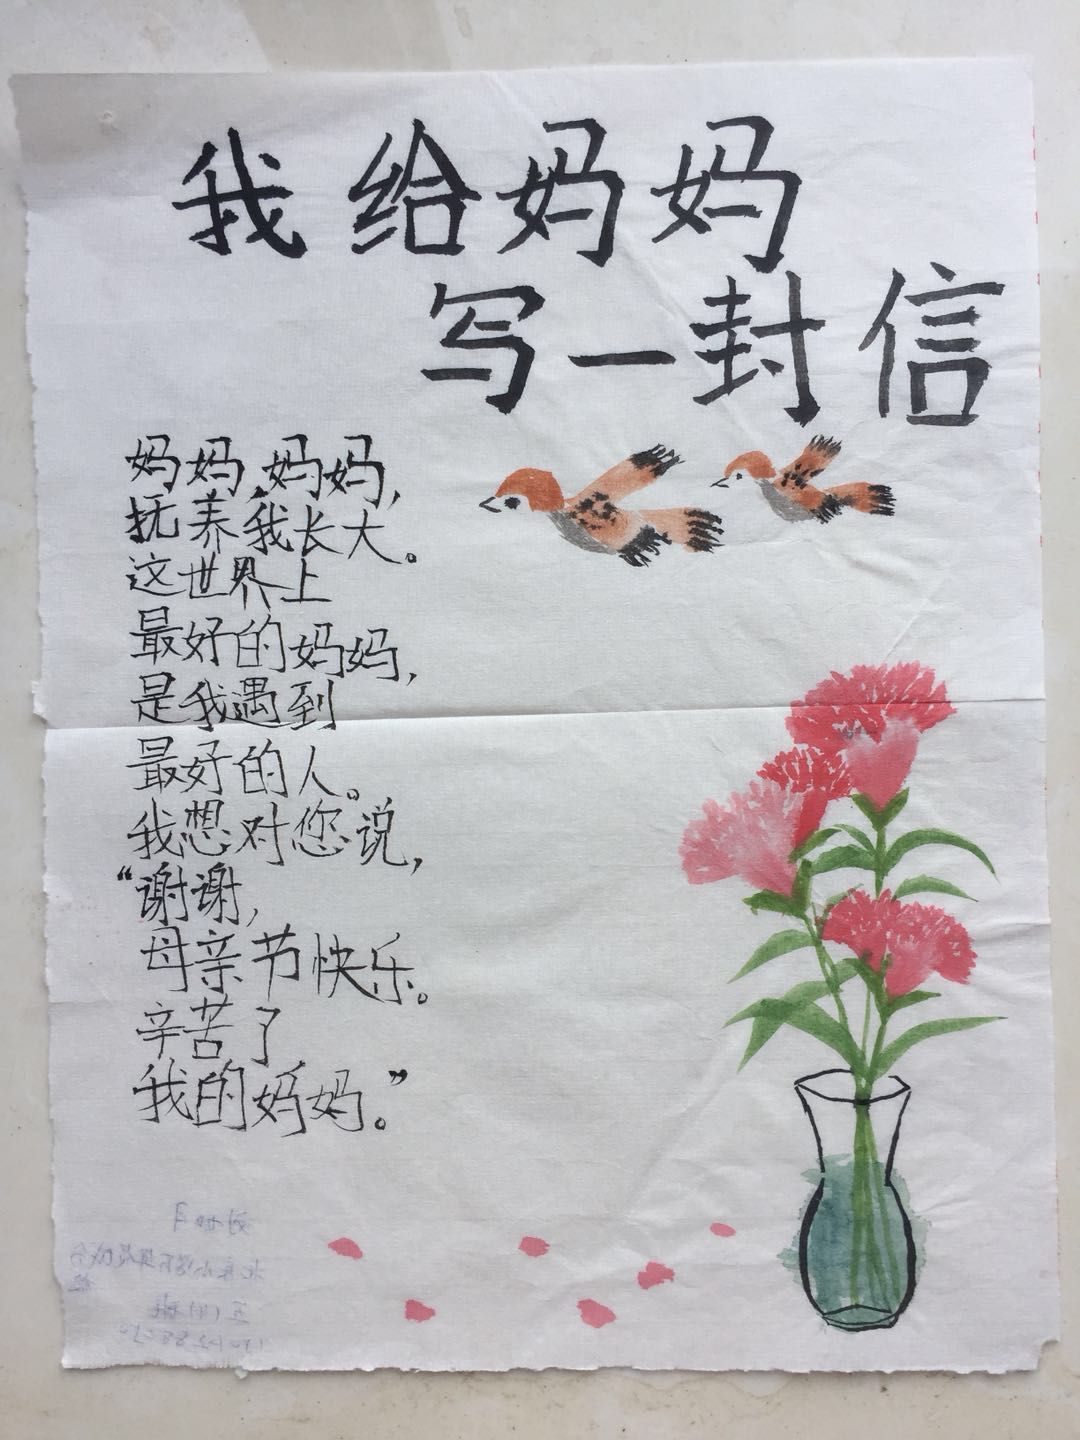 我给妈妈
写一封信
妈妈,妈妈,
抚养我长大。
这世界上
最好的妈妈,
是我遇到
最好的人。
我想对您说,
“谢谢,
母亲节快乐。
辛苦了
我的妈妈。”